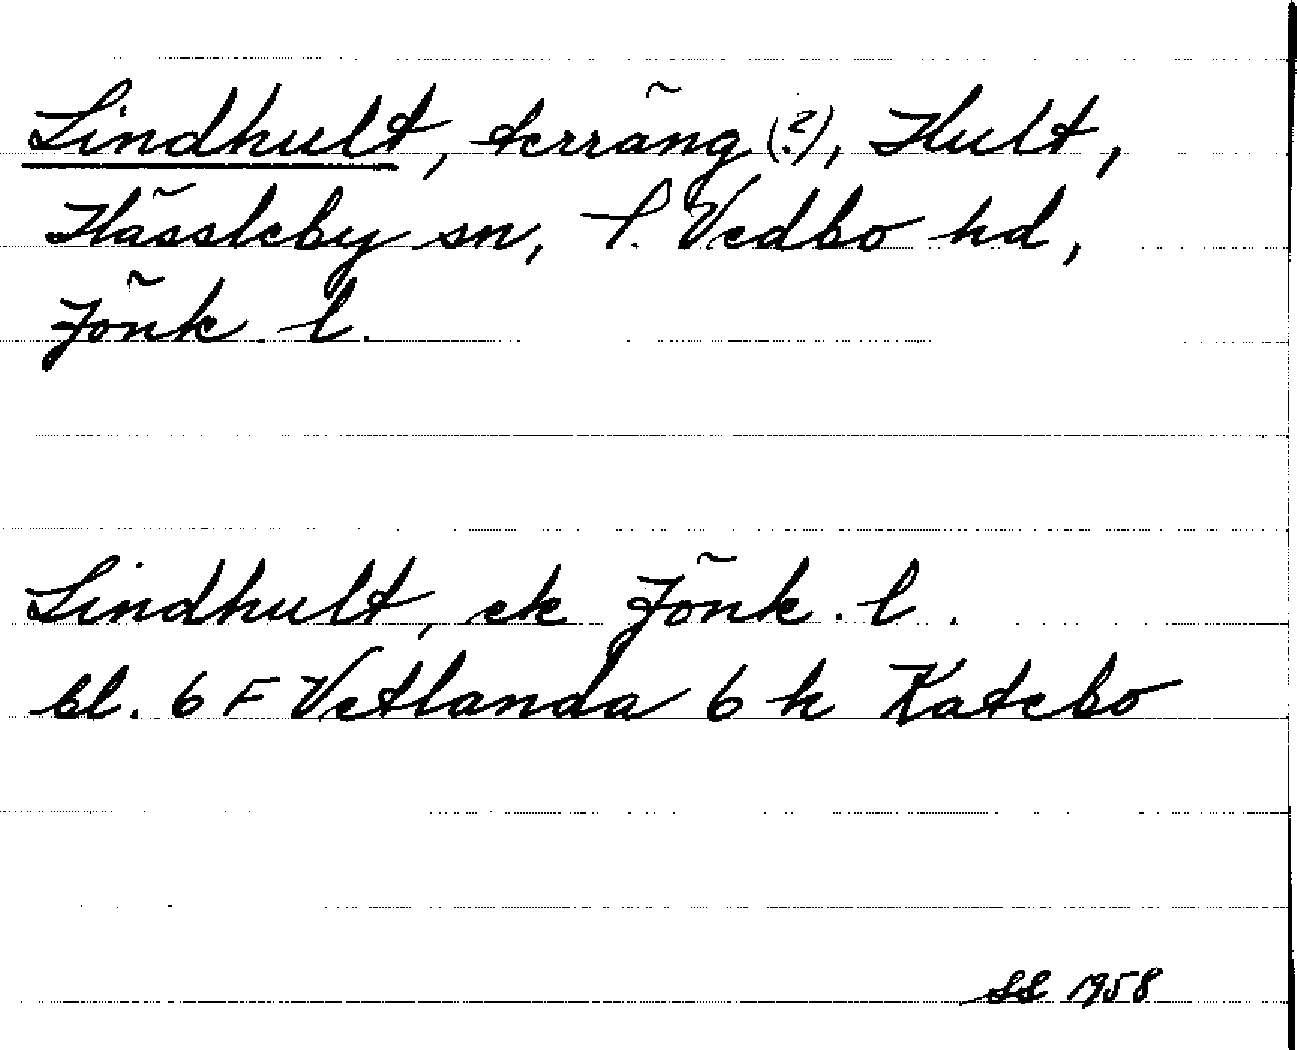 Lindhult, terräng (?), Hult,
Hässleby sn, S. Vedbo hd,
Jönk. l.
Lindhult, ek Jönk. l.
bl. 6 F Vetlanda 6 h Katebo
SS 1958